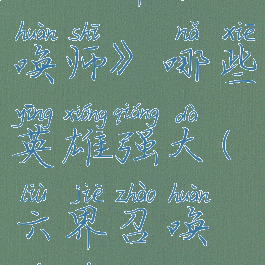 huàn shī nǎ xiē
唤师》哪些
yīng xióng qiáng dà
英雄强大（
liù jiè zhào huàn
六界召唤